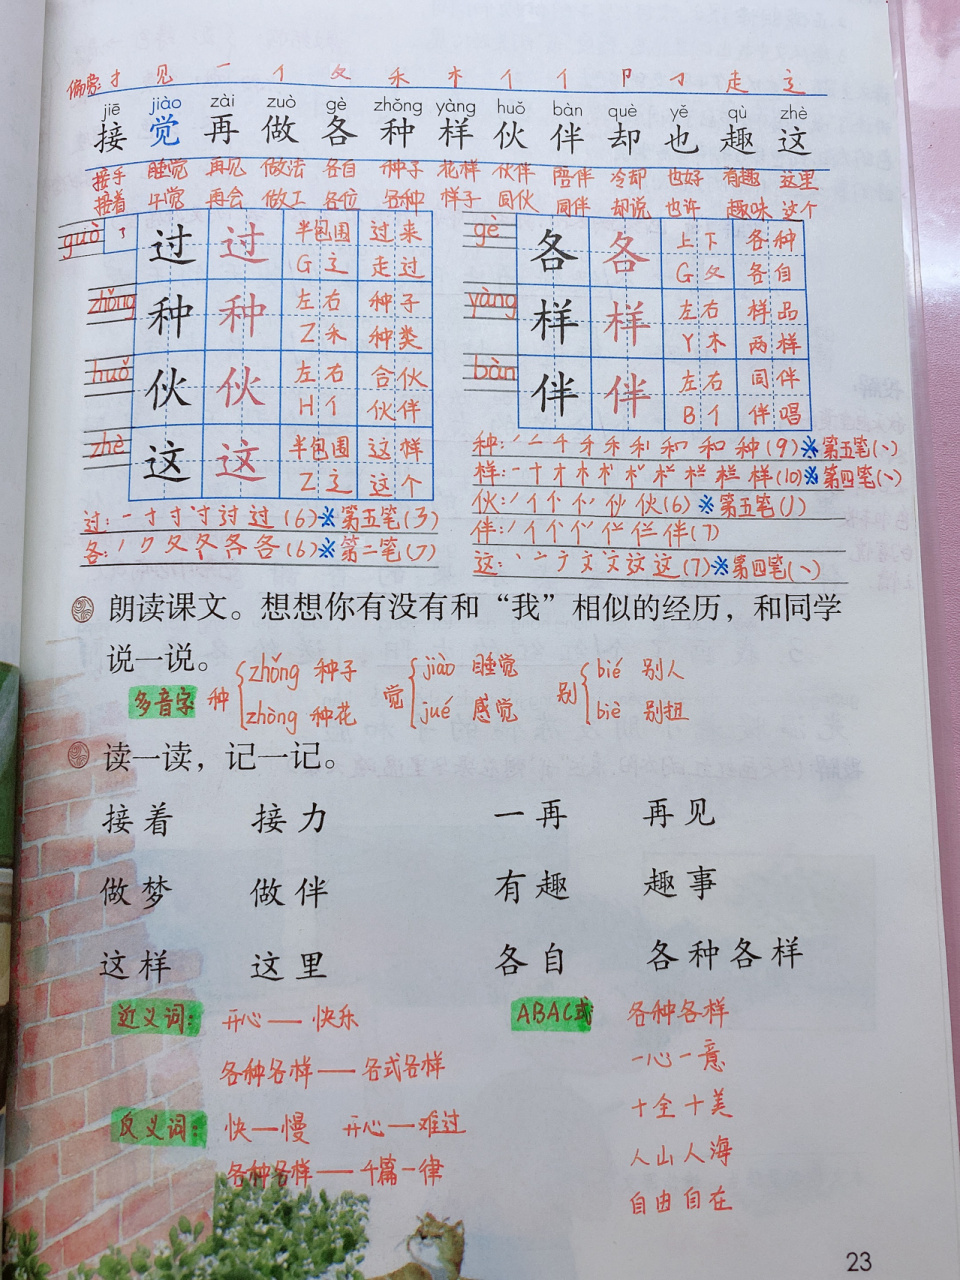 偏旁: 扌 见 一 亻 夂 禾 木 亻 亻 卩 ㇆ 走 辶
jiē jiào zài zuò gè zhǒng yàng huǒ bàn què yě qù zhè
接 觉 再 做 各 种 样 伙 伴 却 也 趣 这
接手 睡觉 再见 做法 各自 种子 花样 伙伴 陪伴 冷却 也好 有趣 这里
接着 午觉 再会 做工 各位 各种 样子 同伙 同伴 却说 也许 趣味 这个
guò 过 过 半包围 过来
G 辶 走过
zhǒng 种 种 左右 种子
Z 禾 种类
huǒ 伙 伙 左右 合伙
H 亻 伙伴
zhè 这 这 半包围 这样
Z 辶 这个
gè 各 各 上下 各种
G 夂 各自
yàng 样 样 左右 样品
Y 木 两样
bàn 伴 伴 左右 同伴
B 亻 伴唱
过: (6)※第五笔(㇋)
各: (6)※第二笔(㇇)
种: (9)※第五笔(㇔)
样: (10)※第四笔(㇔)
伙: (6)※第五笔(丿)
伴: (7)
这: (7)※第四笔(㇔)
朗读课文。想想你有没有和“我”相似的经历，和同学
说一说。
多音字 种 zhǒng 种子 觉 jiào 睡觉 别 bié 别人
zhòng 种花 jué 感觉 biè 别扭
读一读，记一记。
接着 接力 一再 再见
做梦 做伴 有趣 趣事
这样 这里 各自 各种各样
近义词: 开心——快乐
各种各样——各式各样
反义词: 快—慢 开心—难过
各种各样——千篇一律
ABAC式 各种各样
一心一意
十全十美
人山人海
自由自在
23